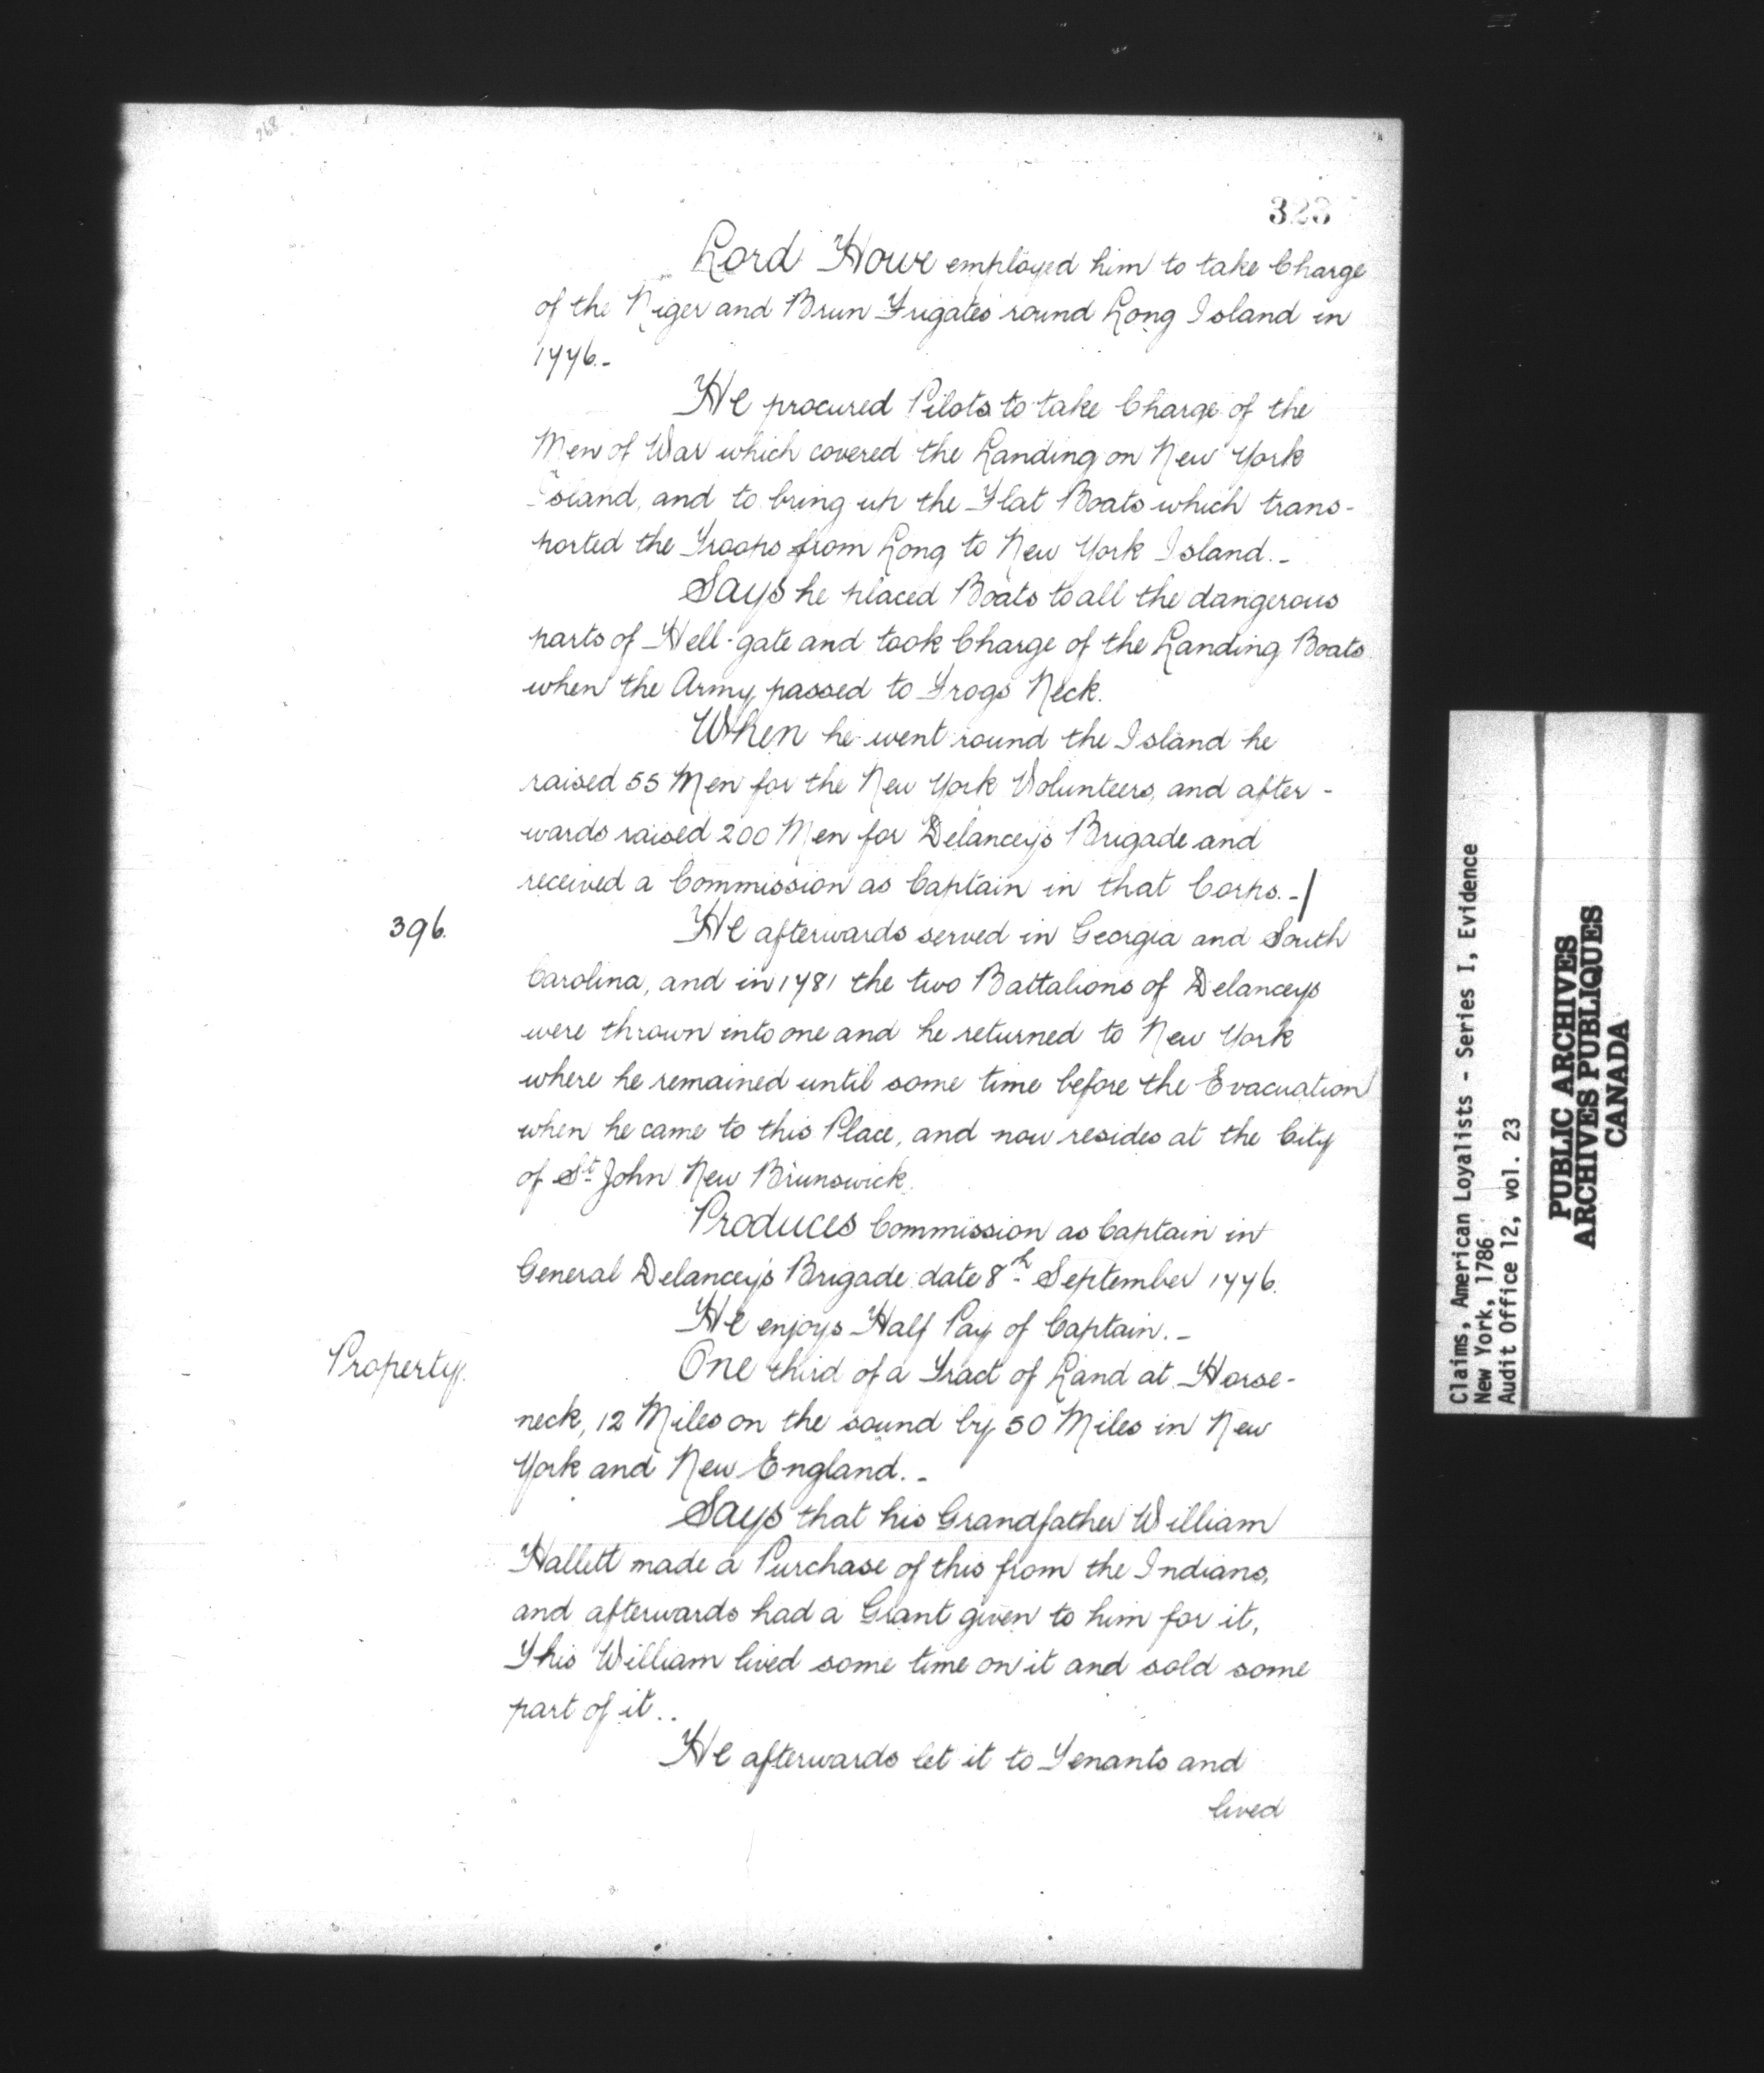 268
323
Lord Howe employed him to take Charge
of the Niger and Brun Frigates round Long Island in
1776.-
He procured Pilots to take Charge of the
Men of War which covered the Landing on New York
Island, and to bring up the Flat Boats which trans-
ported the Troops from Long to New York Island.-
Says he placed Boats to all the dangerous
parts of Hell-gate and took Charge of the Landing Boats
when the Army passed to Frogs Neck.
When he went round the Island he
raised 55 Men for the New York Volunteers, and after-
wards raised 200 Men for Delancey's Brigade and
received a Commission as Captain in that Corps.-/
396.
He afterwards served in Georgia and South
Carolina, and in 1781 the two Battalions of Delanceys
were thrown into one and he returned to New York
where he remained until some time before the Evacuation
when he came to this Place, and now resides at the City
of St John New Brunswick.
Produces Commission as Captain in
General Delancey's Brigade date 8th September 1776.
He enjoys Half Pay of Captain.-
Property.
One third of a Tract of Land at Horse-
neck, 12 Miles on the sound by 50 Miles in New
York and New England.-
Says that his Grandfather William
Hallett made a Purchase of this from the Indians,
and afterwards had a Grant given to him for it,
This William lived some time on it and sold some
part of it..
He afterwards let it to Tenants and
lived
Claims, American Loyalists - Series I, Evidence
New York, 1786
Audit Office 12, vol. 23
PUBLIC ARCHIVES
ARCHIVES PUBLIQUES
CANADA